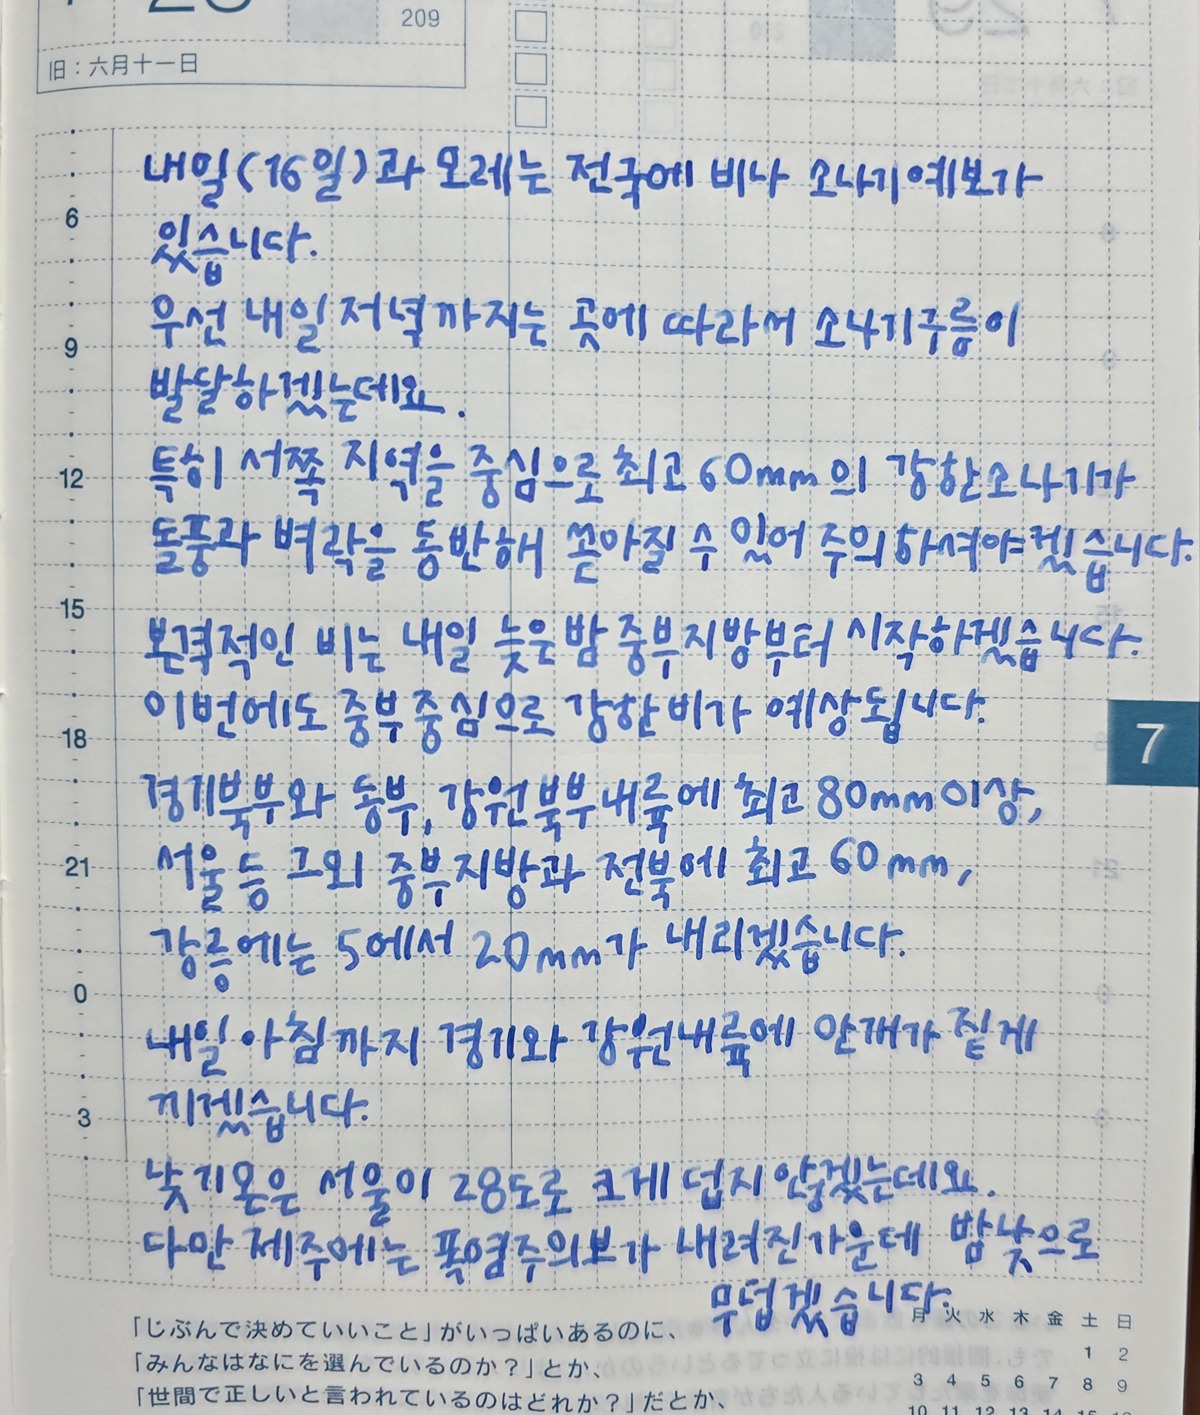 209
旧：六月十一日
내일(16일)과 모레는 전국에 비나 소나기예보가
있습니다.
6
우선 내일 저녁까지는 곳에 따라서 소나기구름이
9
발달하겠는데요.
특히 서쪽 지역을 중심으로 최고 60mm의 강한소나기가
12
돌풍과 벼락을 동반해 쏟아질 수 있어 주의하셔야겠습니다.
15
본격적인 비는 내일 늦은밤 중부지방부터 시작하겠습니다.
이번에도 중부중심으로 강한비가 예상됩니다.
18
7
경기북부와 동부, 강원북부내륙에 최고 80mm이상,
서울 등 그외 중부지방과 전북에 최고 60mm,
21
강릉에는 5에서 20mm가 내리겠습니다.
0
내일 아침까지 경기와 강원내륙에 안개가 짙게
끼겠습니다.
3
낮기온은 서울이 28도로 크게 덥지 않겠는데요.
다만 제주에는 폭염주의보가 내려진가운데 밤낮으로
무덥겠습니다.
「じぶんで決めていいこと」がいっぱいあるのに、
「みんなはなにを選んでいるのか？」とか、
「世間で正しいと言われているのはどれか？」だとか、
月 火 水 木 金 土 日
1 2
3 4 5 6 7 8 9